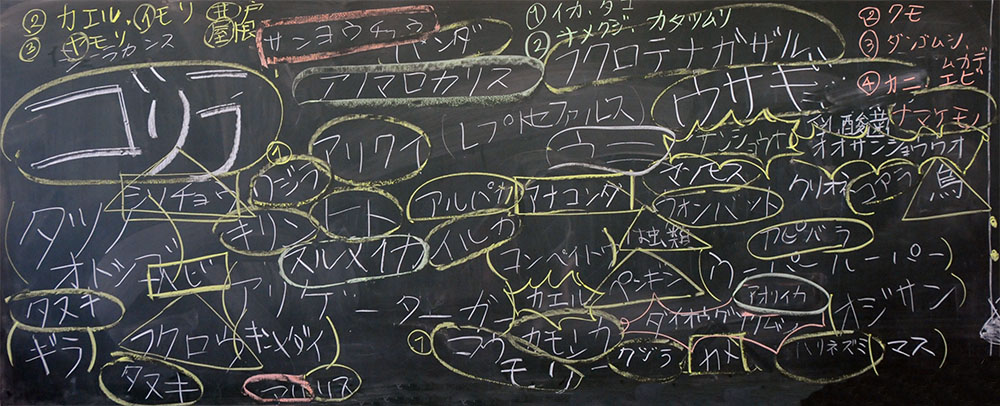 ② カエル、イモリ 井戸
③ ヤモリ 屋根
シーラカンス
サンヨウチュウ
パンダ
アノマロカリス
① イカ、タコ
② ナメクジ、カタツムリ
フクロテナガザル
② クモ
③ ダンゴムシ、ムカデ
④ カニ エビ
ゴリラ
アリクイ
(レプトセファルス)
ウニ
ウサギ
ナマケモノ
乳酸菌
オオサンショウウオ
クジラ
ヒト
アルパカ
アナコンダ
ウォンバット
クリオネ
コアラ
鳥
タツノ
オトシゴ
ヘビ
キリン
スルメイカ
イルカ
コンペイトウ
は虫類
カピバラ
タヌキ
アリゲーターガー
カエル
ペンギン
(ウーパールーパー)
アオリイカ
オジサン)
ギラ
フクロウ
キンメダイ
① コウモリ
カモノハシ
クジラ
カメ
ハリネズミ
マス)
タヌキ
リス